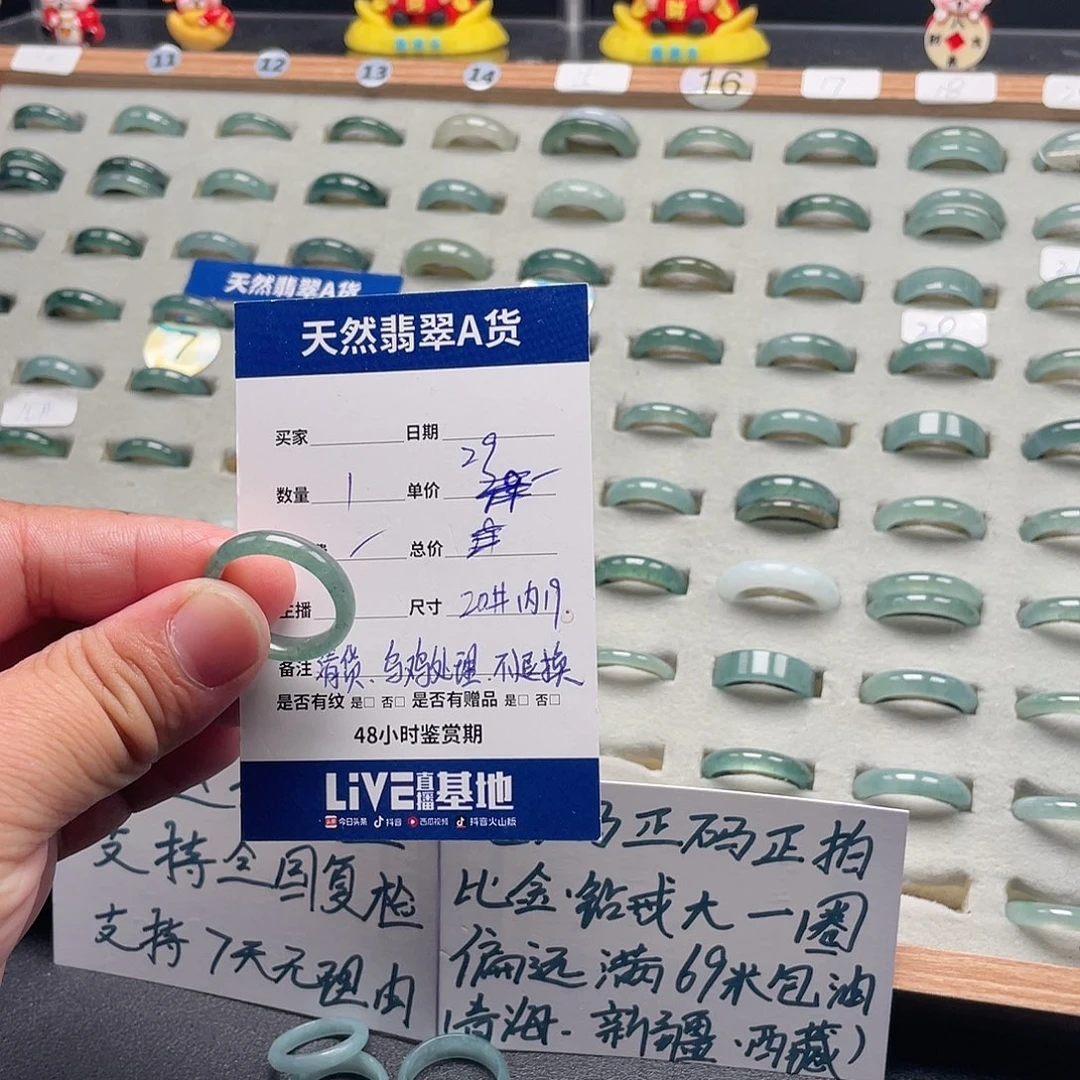 11
12
13
14
15
16
17
18
天然翡翠A货
7
20
天然翡翠A货
买家 日期
29
数量 1 单价
总价
主播 尺寸 20# 内19.
备注 清货、乌鸡处理、不退换
是否有纹 是□ 否□ 是否有赠品 是□ 否□
48小时鉴赏期
LiVE直播基地
今日头条 抖音 西瓜视频 抖音火山版
支持全国复检
支持7天无理由
码正码正拍
比金·钻戒大一圈
偏远满69米包油
(青海.新疆.西藏)